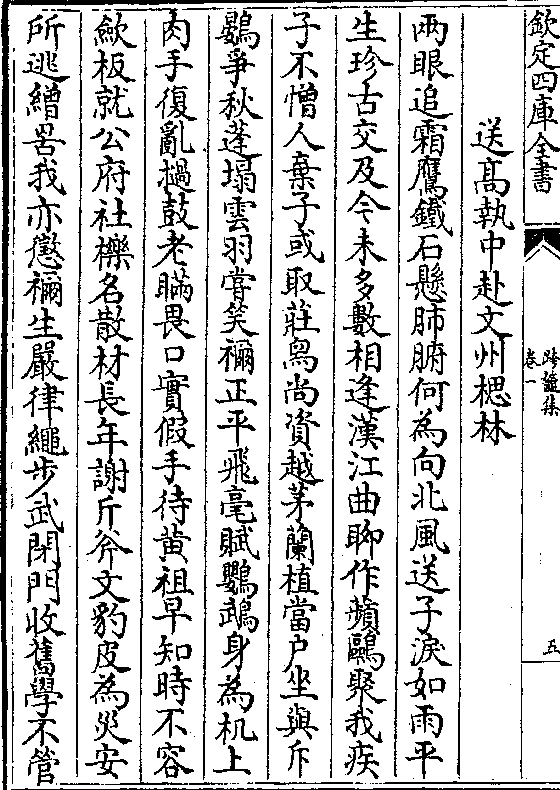 欽定四庫全書
跨鼇集
卷一
五
送髙執中赴文州楒林
兩眼追霜鷹鐵石懸肺腑何為向北風送子淚如雨平
生珍古交及今未多數相逢漢江曲聊作蘋鷗聚我疾
子不憎人棄子或取莊舄尚資越茅蘭植當户坐與斥
鷃爭秋蓬塌雲羽嘗笑禰正平飛毫賦鸚鵡身為机上
肉手復亂撾鼓老瞞畏口實假手待黄祖早知時不容
斂板就公府社櫟名散材長年謝斤斧文豹皮為災安
所逃繒罟我亦懲禰生嚴律繩步武閉門收舊學不管